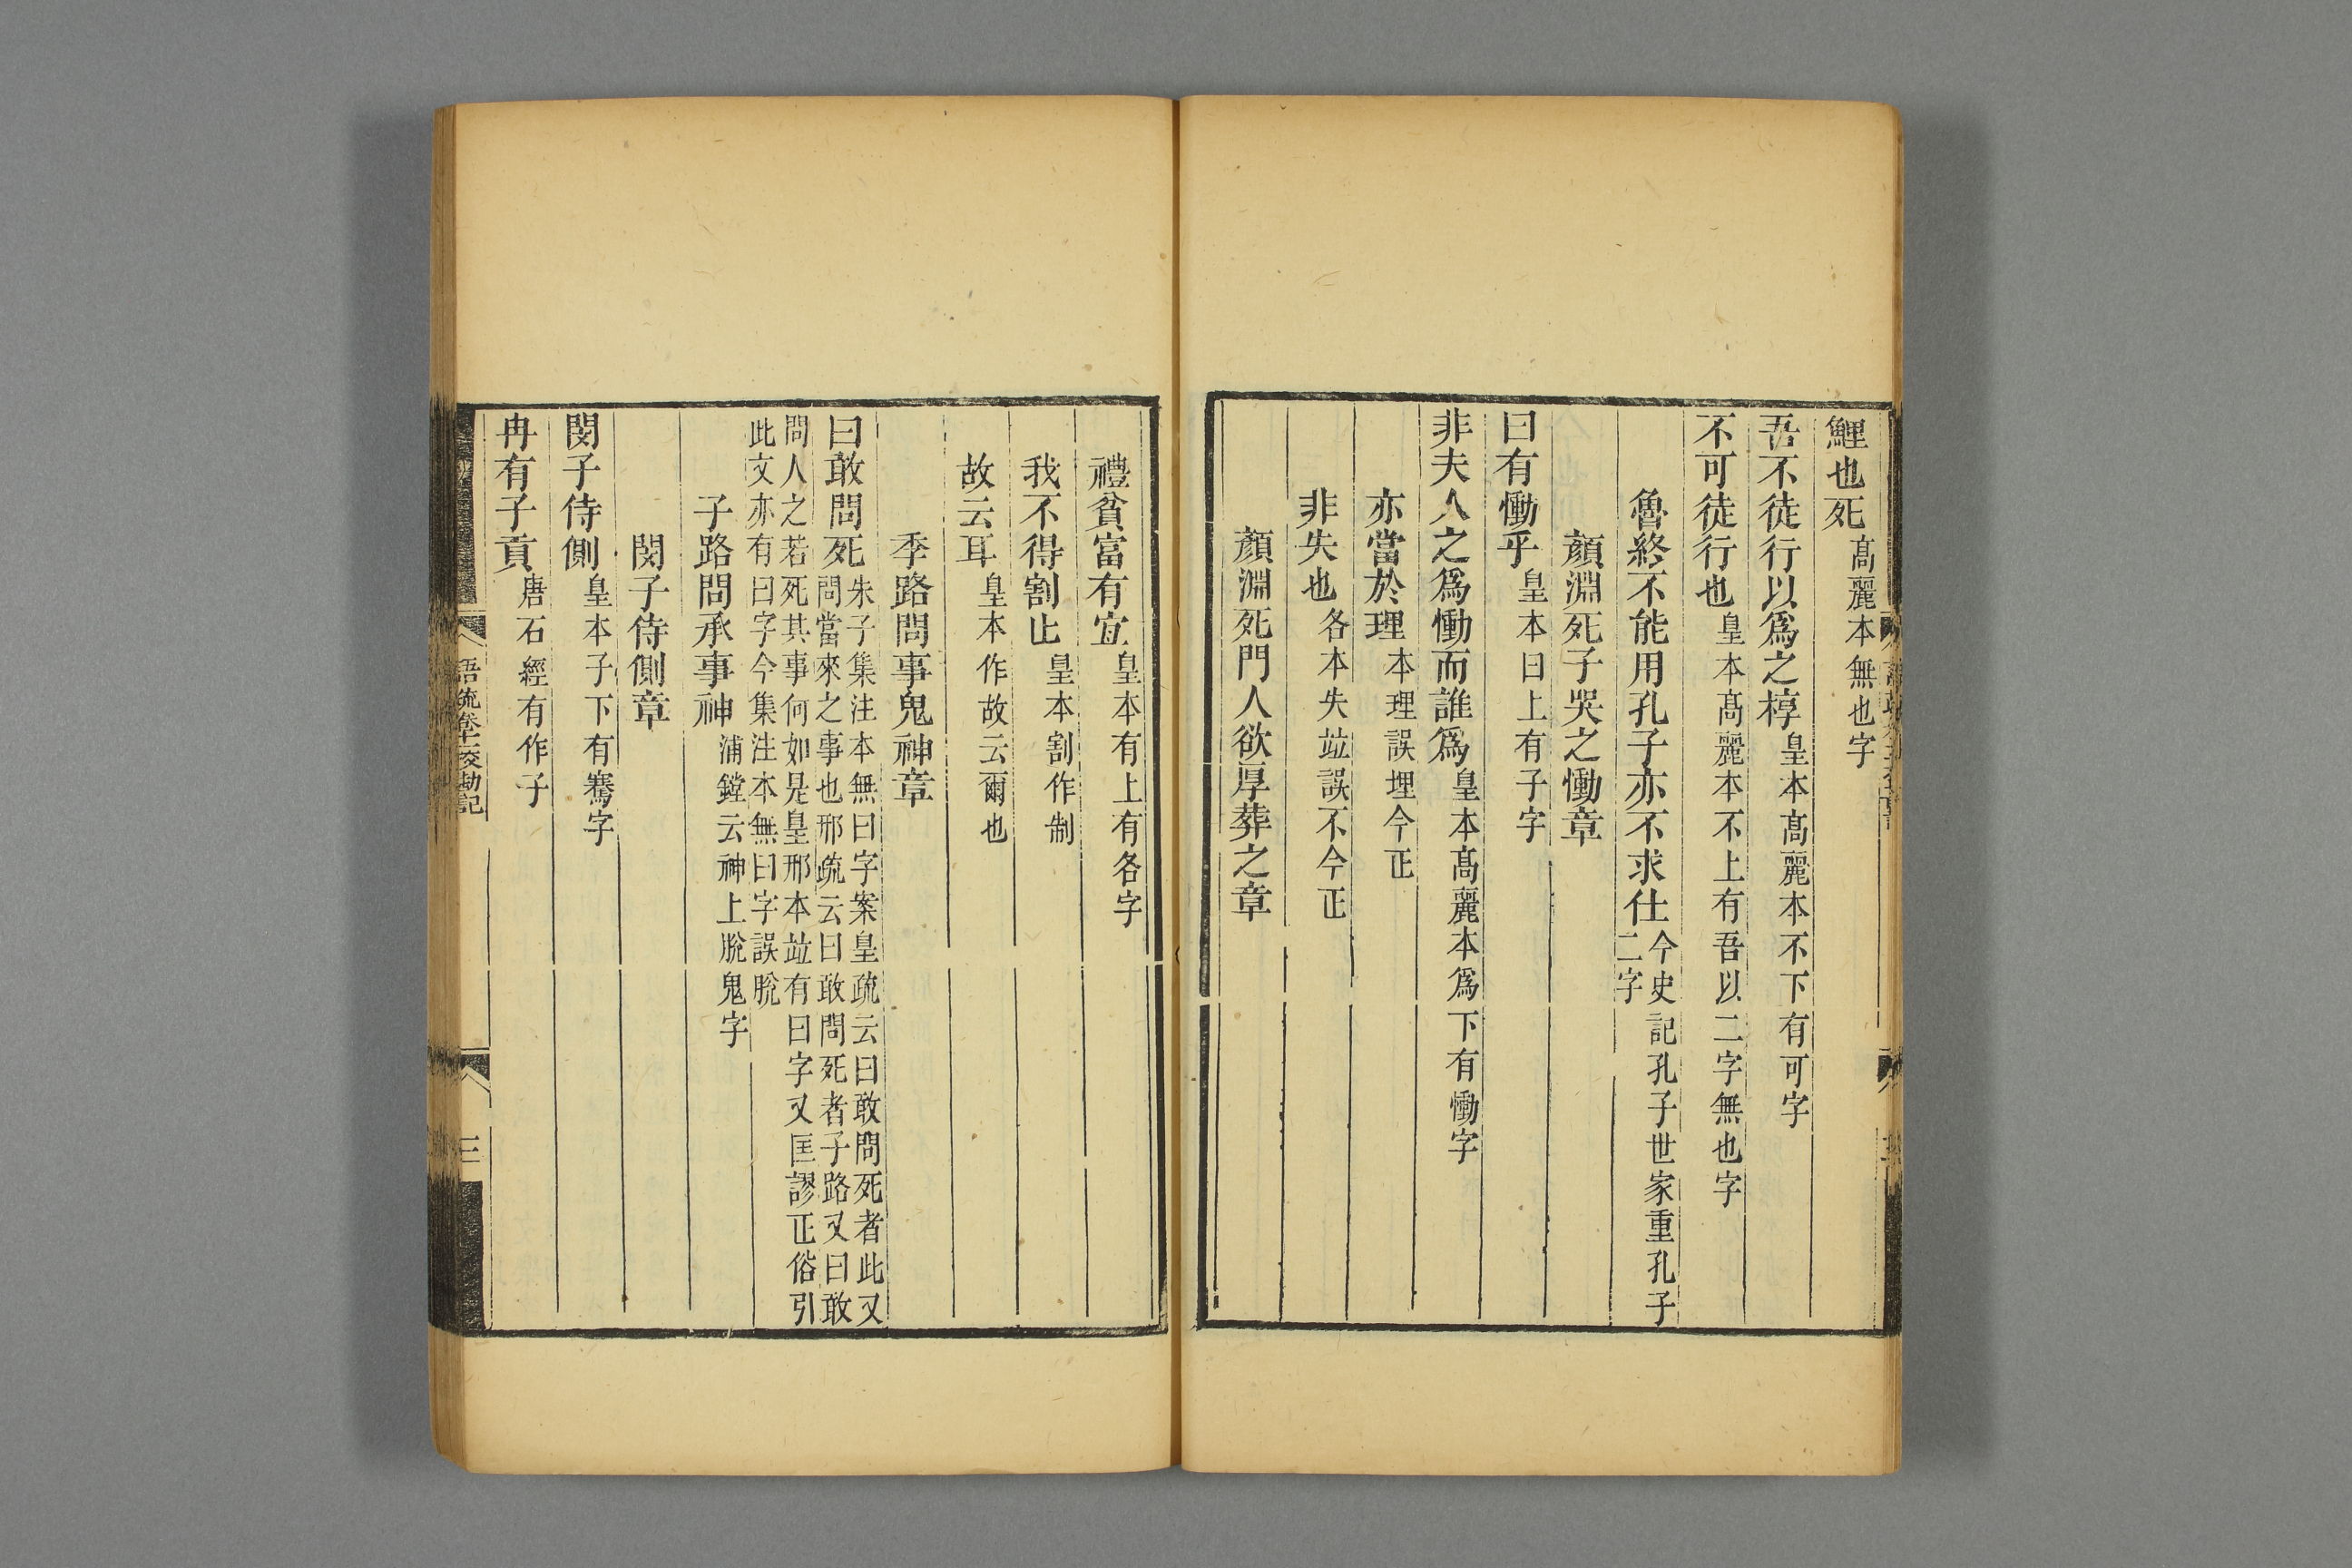 鯉也死高麗本無也字
吾不徒行以爲之椁皇本高麗本不下有可字
不可徒行也皇本高麗本不上有吾以二字無也字
魯終不能用孔子亦不求仕今史記孔子世家重孔子二字
顏淵死子哭之慟章
曰有慟乎皇本曰上有子字
非夫人之爲慟而誰爲皇本高麗本爲下有慟字
亦當於理本理誤埋今正
非失也各本失竝誤不今正
顏淵死門人欲厚葬之章
禮貧富有宜皇本有上有各字
我不得割止皇本割作制
故云耳皇本作故云爾也
季路問事鬼神章
曰敢問死朱子集注本無曰字案皇疏云曰敢問死者此又
問當來之事也邢疏云曰敢問死者子路又曰敢
問人之若死其事何如是皇邢本竝有曰字又匡謬正俗引
此文亦有曰字今集注本無曰字誤脫
子路問承事神浦鏜云神上脫鬼字
閔子侍側章
閔子侍側皇本子下有騫字
冉有子貢唐石經有作子
語疏卷十一校勘記
三